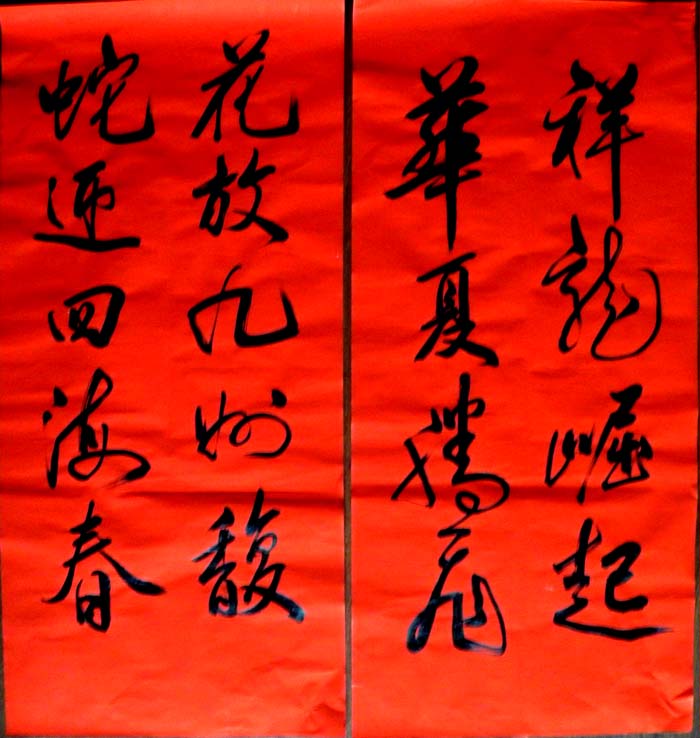 祥龙崛起
華夏腾飛
花放九州馥
蛇迎四海春